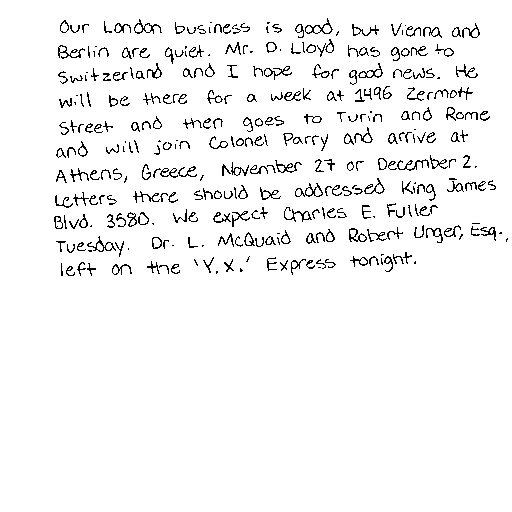 Our London business is good, but Vienna and
Berlin are quiet. Mr. D. Lloyd has gone to
Switzerland and I hope for good news. He
will be there for a week at 1496 Zermott
Street and then goes to Turin and Rome
and will join Colonel Parry and arrive at
Athens, Greece, November 27 or December 2.
Letters there should be addressed King James
Blvd. 3580. We expect Charles E. Fuller
Tuesday. Dr. L. McQuaid and Robert Unger, Esq.,
left on the 'Y.X.' Express tonight.